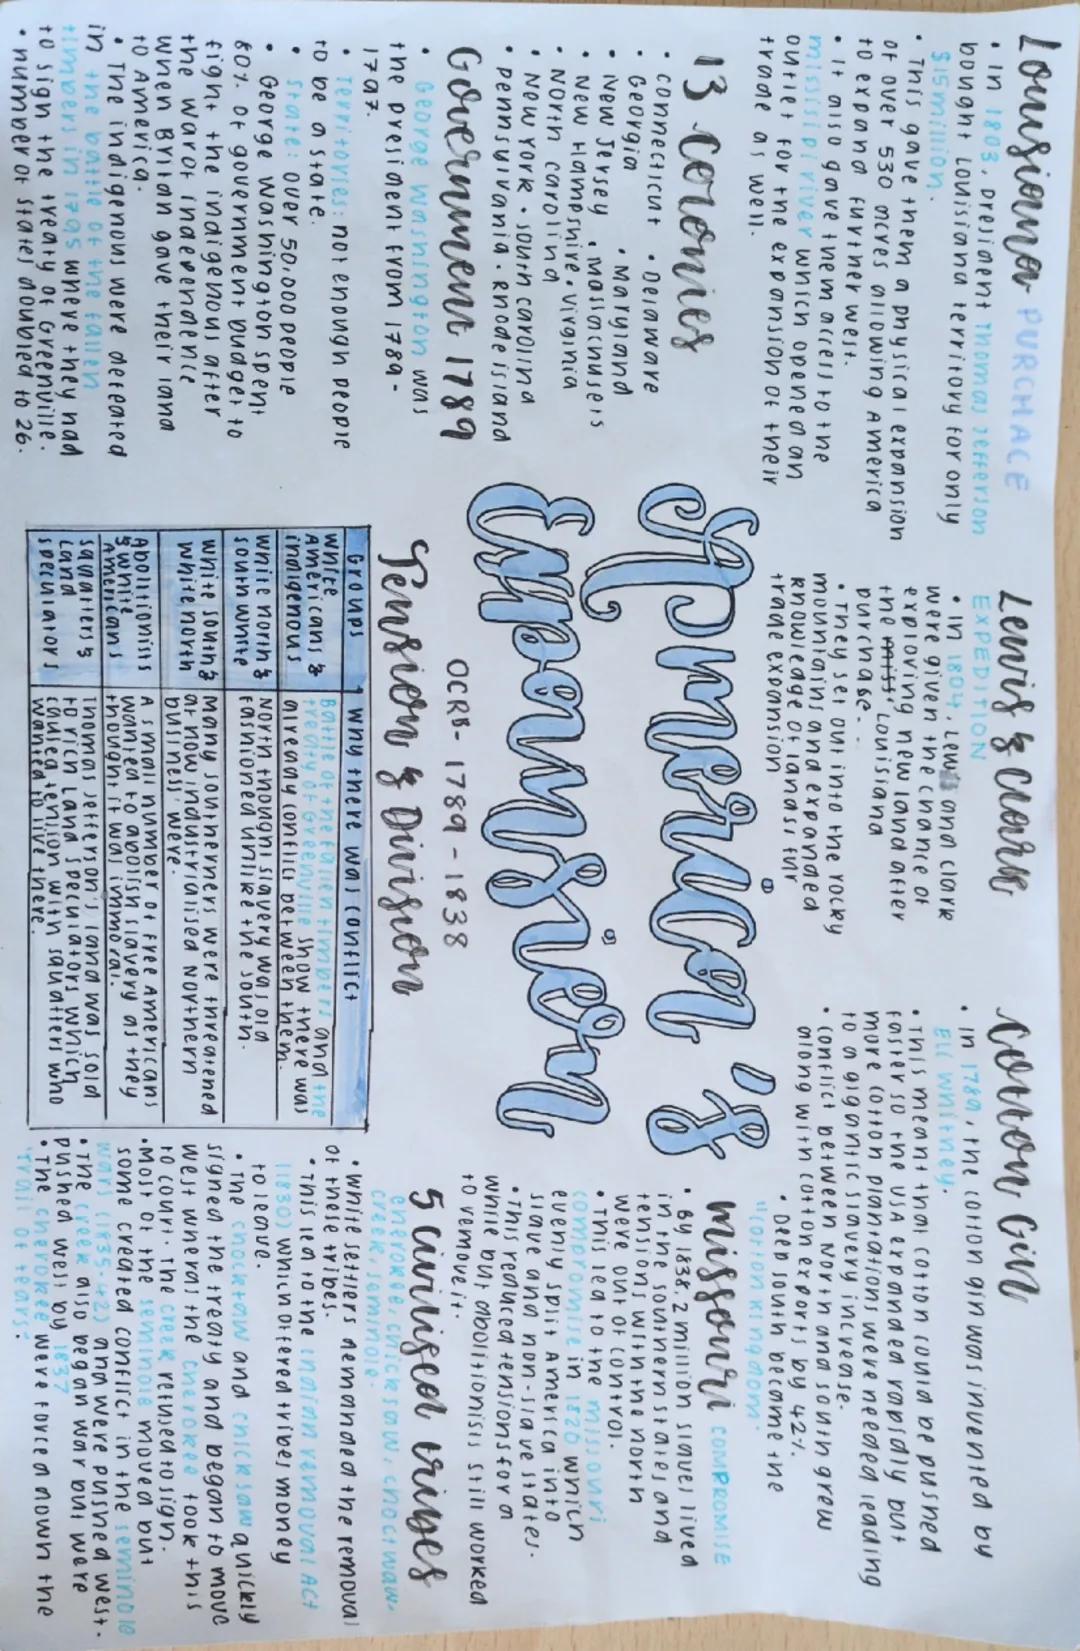 Louisiana PURCHACE
• In 1803, president Thomas Jefferson
bought Louisiana territory for only
$15 million.
• This gave them a physical expansion
of over 530 acres allowing America
to expand further west.
• It also gave them access to the
missisipi river which opened an
outlet for the expansion of their
trade as well.
13 colonies
• connecticut • Delaware
• Georgia • Maryland
• New Jersey • Massachusets
• New Hampshire • Virginia
• North carolina
• New York • south carolina
• pennsylvania • Rhode island
Government 1789
• George washington was
the president from 1789-
1797.
• Territories: not enough people
to be a state.
• State: over 50,000 people
• George washington spent
80% of government budget to
fight the indigenous after
the war of independence
when Britian gave their land
to America.
• The indigenous were defeated
in the battle of the fallen
timbers in 1795 where they had
to sign the treaty of Greenville.
• number of states doubled to 26.
Lewis & clark
EXPEDITION
• In 1804, Lewis and clark
were given the chance of
exploving new land after
the Louisiana
purchase.
• They set out into the rocky
mountains and expanded
knowledge of lands, fur
trade expansion
America's
Expansion
OCRB- 1789-1838
Tension & Division
Groups
Why there was conflict
White
Americans &
indigenous
Battle of the fallen timbers and the
treaty of Greenville show there was
already conflict between them.
White north &
south white
North thought slavery was old
fashioned unlike the south.
White south &
white north
Many southerners were threatened
at how industrialised Northern
business' were.
Abolitionists
& white
Americans
A small number of free Americans
wanted to abolish slavery as they
thought it was immoral.
squatters &
Land
speculators
Thomas Jefferson's land was sold
to rich Land speculators which
caused tension with squatters who
wanted to live there.
Cotton Gin
• In 1789, the cotton gin was invented by
Eli whitney.
• This meant that cotton could be pushed
faster so the USA expanded rapidly but
more cotton plantations were needed leading
to a gigantic slavery increase.
• Conflict between North and south grew
along with cotton exports by 42%.
• Deep south became the
"cotton kingdom."
missouri COMPROMISE
• By 1838, 2 million slaves lived
in the southern states and
tensions with the north
were out of control.
• This lea to the missouri
compromise in 1820 which
evenly split America into
slave and non-slave states.
• This reduced tensions for a
while but abolitionists still worked
to remove it.
5 civilised tribes
cherokee, chicksaw, choctwaw,
creek, seminole.
• White settlers demanded the removal
of these tribes.
• This led to the Indian removal Act
(1830) which offered tribes money
to leave.
• The chocktaw and chicksaw quickly
signed the treaty and began to move
west whereas the cherokee took this
to court. The creek refused to sign.
• Most of the seminole moved but
some created conflict in the seminole
wars (1835-42) and were pushed west.
• The creek also began war but were
pushed west by 1837
• The cherokee were force down the
'Trail of tears'.